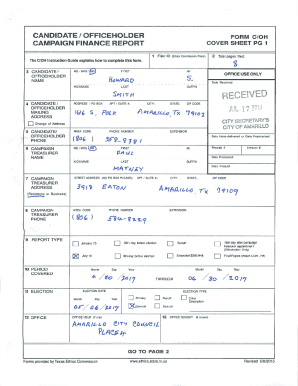 CANDIDATE / OFFICEHOLDER
CAMPAIGN FINANCE REPORT
FORM C/OH
COVER SHEET PG 1
The C/OH Instruction Guide explains how to complete this form.
1 Filer ID (Ethics Commission Filers)
2 Total pages filed:
8
3 CANDIDATE /
OFFICEHOLDER
NAME
MS / MRS / MR
FIRST
MI
HOWARD
S.
NICKNAME
LAST
SUFFIX
SMITH
OFFICE USE ONLY
Date Received
RECEIVED
JUL 17 2017
CITY SECRETARY'S
CITY OF AMARILLO
4 CANDIDATE /
OFFICEHOLDER
MAILING
ADDRESS
Change of Address
ADDRESS / PO BOX; APT / SUITE #; CITY; STATE; ZIP CODE
S. POLK AMARILLO, TX 79102
5 CANDIDATE/
OFFICEHOLDER
PHONE
AREA CODE
PHONE NUMBER
EXTENSION
(806)
Date Hand-delivered or Date Postmarked
6 CAMPAIGN
TREASURER
NAME
MS / MRS / MR
FIRST
MI
PAUL
NICKNAME
LAST
SUFFIX
MATNEY
Receipt #
Date Processed
Date Imaged
7 CAMPAIGN
TREASURER
ADDRESS
(Residence or Business)
STREET ADDRESS (NO PO BOX PLEASE); APT / SUITE #; CITY; STATE; ZIP CODE
3918 EATON AMARILLO TX 79109
8 CAMPAIGN
TREASURER
PHONE
AREA CODE
PHONE NUMBER
EXTENSION
(806)
9 REPORT TYPE
January 15
30th day before election
Runoff
15th day after campaign
treasurer appointment
(Officeholder Only)
July 15
8th day before election
Exceeded $500 limit
Final Report (Attach C/OH - FR)
10 PERIOD
COVERED
Month Day Year
4/30/2017
THROUGH
Month Day Year
6/30/2017
11 ELECTION
ELECTION DATE
Month Day Year
05/06/2017
ELECTION TYPE
Primary
Runoff
Other
Description
General
Special
12 OFFICE
OFFICE HELD (if any)
AMARILLO CITY COUNCIL
PLACE 4
13 OFFICE SOUGHT (if known)
GO TO PAGE 2
Forms provided by Texas Ethics Commission
www.ethics.state.tx.us